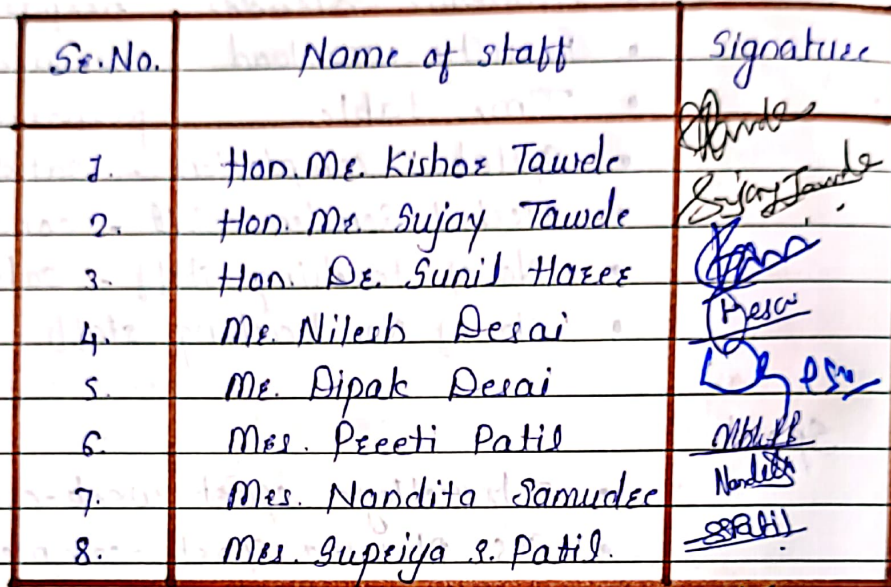 Sr.No. Name of staff Signature
1. Hon. Mr. Kishor Tawde Tawde
2. Hon. Mr. Sujay Tawde Sujay Tawde
3. Hon. Dr. Sunil Harer
4. Mr. Nilesh Desai Desai
5. Mr. Dipak Desai
6. Mrs. Preeti Patil
7. Mrs. Nandita Samudre Nandita
8. Mrs. Supriya S. Patil. SSPatil